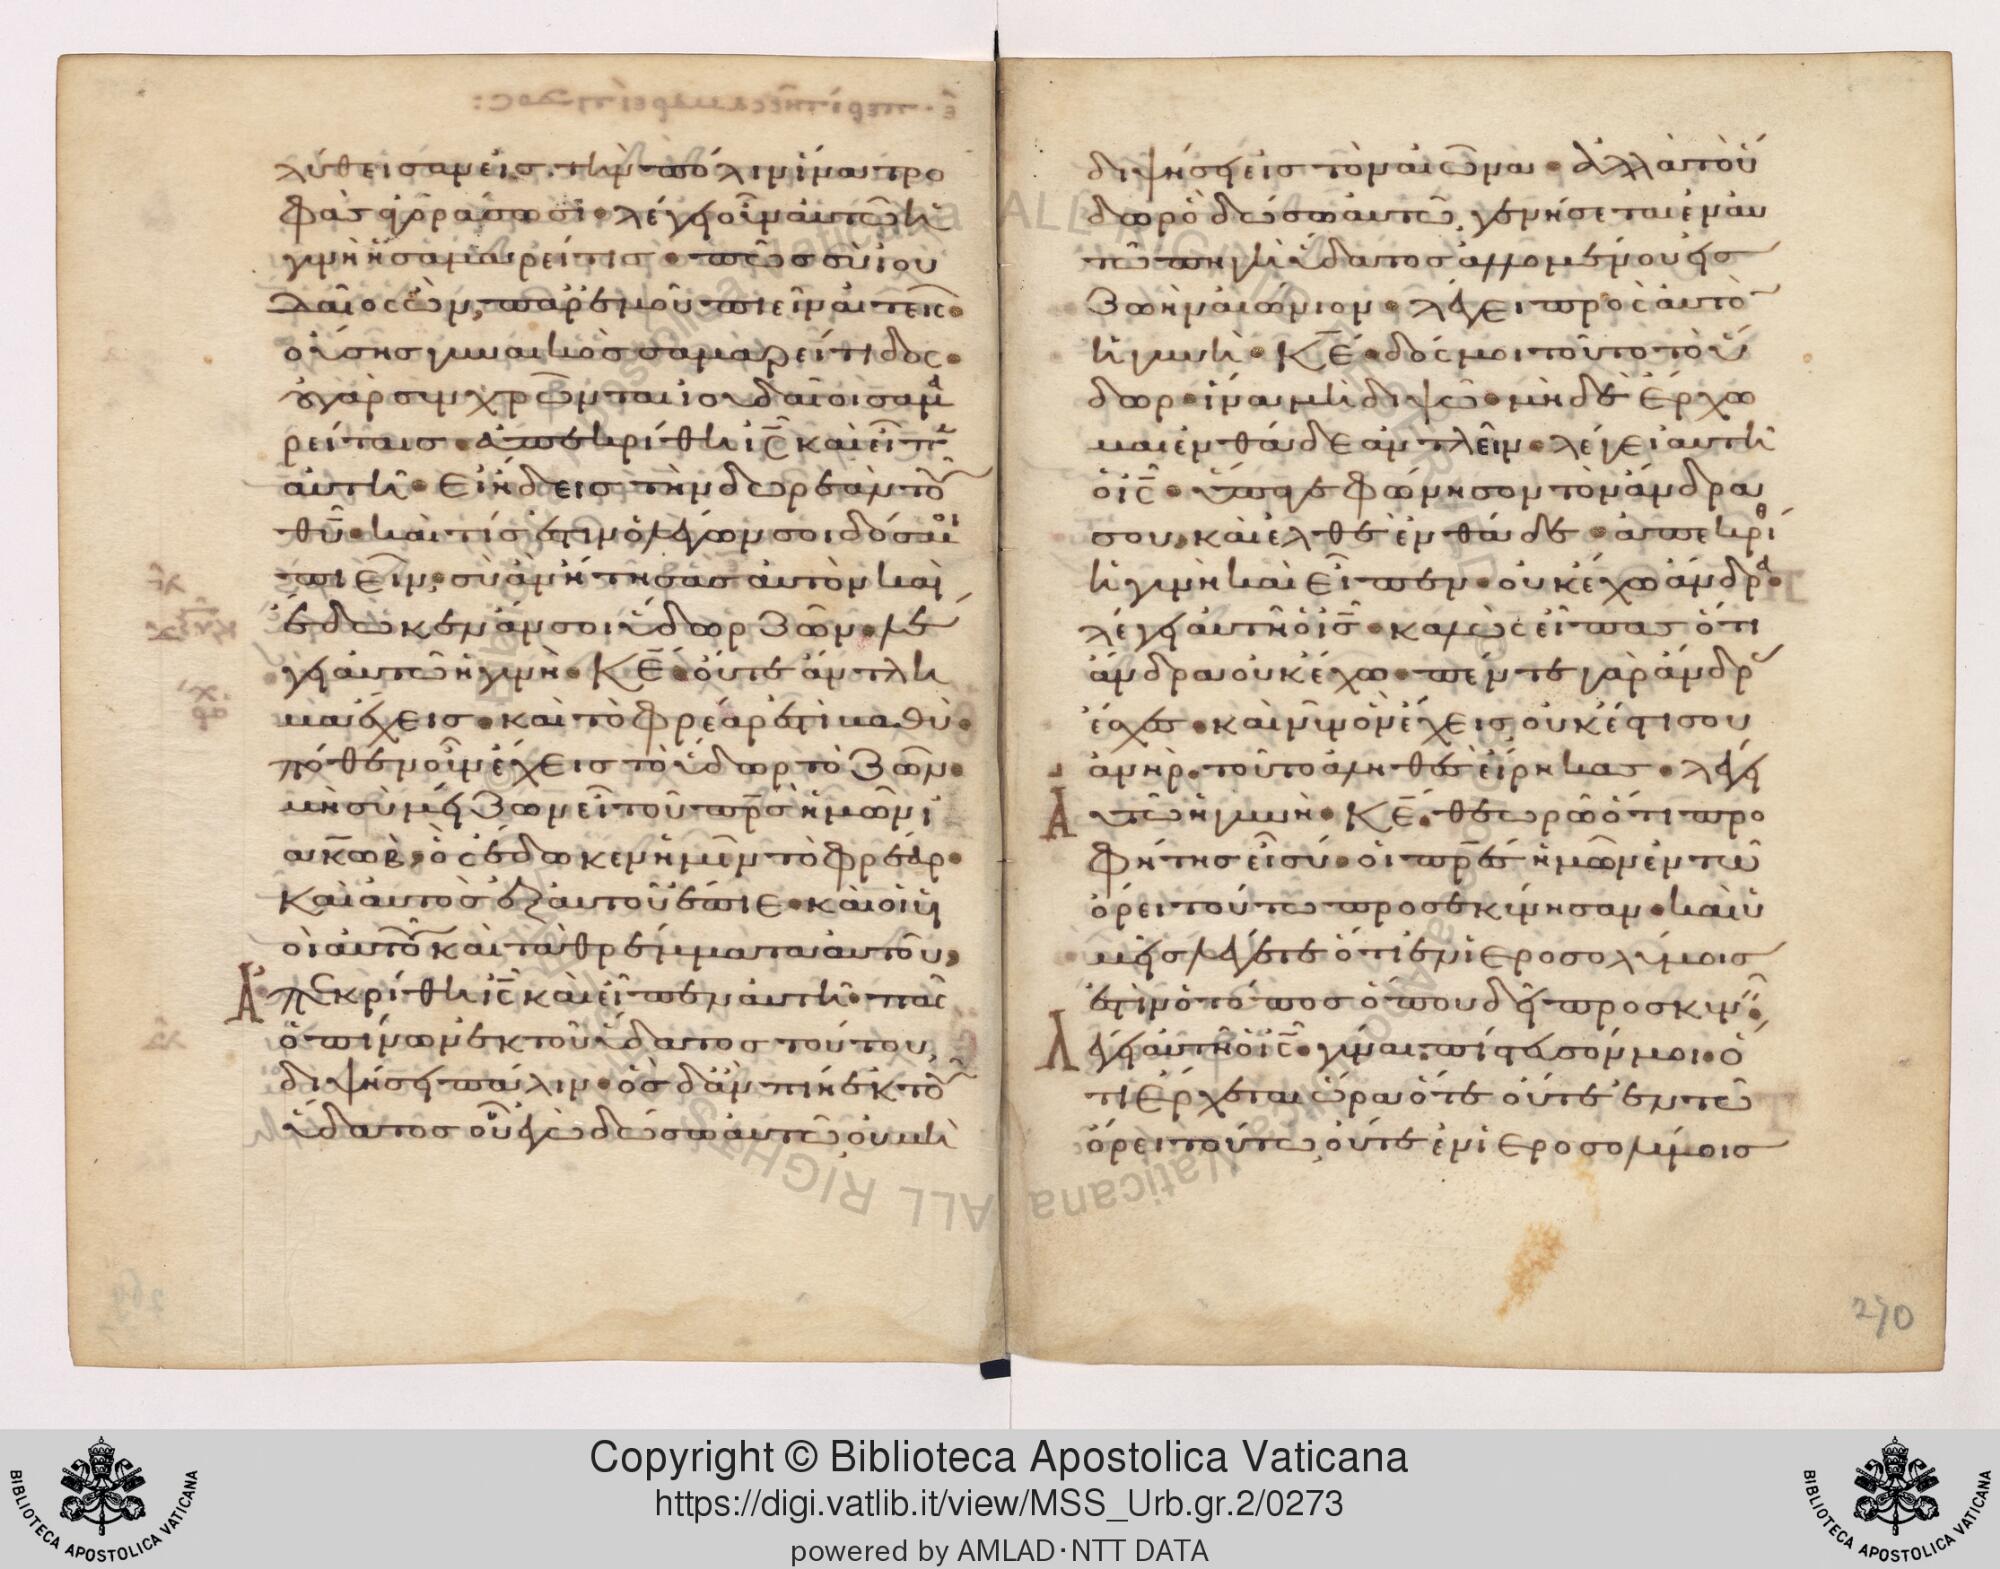 λύθεισαν εἰς τὴν πόλιν ἵνα τρο
φὰς ἀγοράσωσι· λέγει οὖν αὐτῶ ἡ
γυνὴ ἡ σαμαρείτις· πῶς σὺ ϊου
δαῖος ὢν, παρ' ἐμοῦ πιεῖν αἰτεῖς·
οὔσης γυναικὸς σαμαρείτιδος·
οὐ γὰρ συγχρῶνται ϊουδαῖοι σαμα
ρείταις· ἀπεκρίθη ις καὶ εἶπεν
αὐτῆ· εἰ ἤδεις τὴν δωρεὰν τοῦ
θυ· καὶ τίς ἐστιν ὁ λέγων σοι δός μοι
πιεῖν, σὺ ἂν ἤτησας αὐτὸν καὶ
ἔδωκεν ἄν σοι ὕδωρ ζῶν· λέ
γει αὐτῶ ἡ γυνὴ· κε· οὔτε ἄντλη
μα ἔχεις· καὶ τὸ φρέαρ ἐστὶ βαθύ·
πόθεν οὖν ἔχεις τὸ ὕδωρ τὸ ζῶν·
μὴ σὺ μείζων εἶ τοῦ πρς ἡμῶν ϊ
ακωβ, ὃς ἔδωκεν ἡμῖν τὸ φρέαρ·
καὶ αὐτὸς ἐξ αὐτοῦ ἔπιε· καὶ οἱ υἱ
οὶ αὐτοῦ καὶ τὰ θρέμματα αὐτοῦ,
Ἀπεκρίθη ις καὶ εἶπεν αὐτῆ· πᾶς
ὁ πίνων ἐκ τοῦ ὕδατος τούτου,
διψήσει πάλιν· ὃς δ' ἂν πίη ἐκ τοῦ
ὕδατος οὗ ἐγὼ δώσω αὐτῶ, οὐ μὴ
διψήσει εἰς τὸν αἰῶνα· ἀλλὰ τὸ ὕ
δωρ ὃ δώσω αὐτῶ, γενήσεται ἐν αυ
τῶ πηγὴ ὕδατος ἁλλομένου εἰς
ζωὴν αἰώνιον· λέγει πρὸς αὐτὸν
ἡ γυνὴ· κε· δός μοι τοῦτο τὸ ὕ
δωρ· ἵνα μὴ διψῶ· μὴ δὲ ἔρχω
μαι ἐνθάδε ἀντλεῖν· λέγει αὐτῆ
ὁ ις· ὕπαγε φώνησον τὸν ἄνδρα
σου, καὶ ἐλθὲ ἐνθάδε· ἀπεκρίθ
η ἡ γυνὴ καὶ εἶπεν· οὐκ ἔχω ἄνδρα·
λέγει αὐτῆ ὁ ις· καλῶς εἶπας ὅτι
ἄνδρα οὐκ ἔχω· πέντε γὰρ ἄνδρας
ἔσχες· καὶ νῦν ὃν ἔχεις, οὐκ ἔστι σου
ἀνήρ· τοῦτο ἀληθὲς εἴρηκας· λέγει
Ἀυτῶ ἡ γυνὴ· κε· θεωρῶ ὅτι προ
φήτης εἶ σύ· οἱ πρες ἡμῶν ἐν τῶ
ὄρει τούτω προσεκύνησαν· καὶ ὑ
μεῖς λέγετε ὅτι ἐν ϊεροσολύμοις
ἐστὶν ὁ τόπος ὅπου δεῖ προσκυνεῖν·
Λέγει αὐτῆ ὁ ις· γύναι, πίστευσόν μοι· ὅ
τι ἔρχεται ὥρα ὅτε οὔτε ἐν τῶ
ὄρει τούτω, οὔτε ἐν ϊεροσολύμοις
270
Copyright © Biblioteca Apostolica Vaticana
https://digi.vatlib.it/view/MSS_Urb.gr.2/0273
powered by AMLAD·NTT DATA
BIBLIOTECA APOSTOLICA VATICANA
BIBLIOTECA APOSTOLICA VATICANA